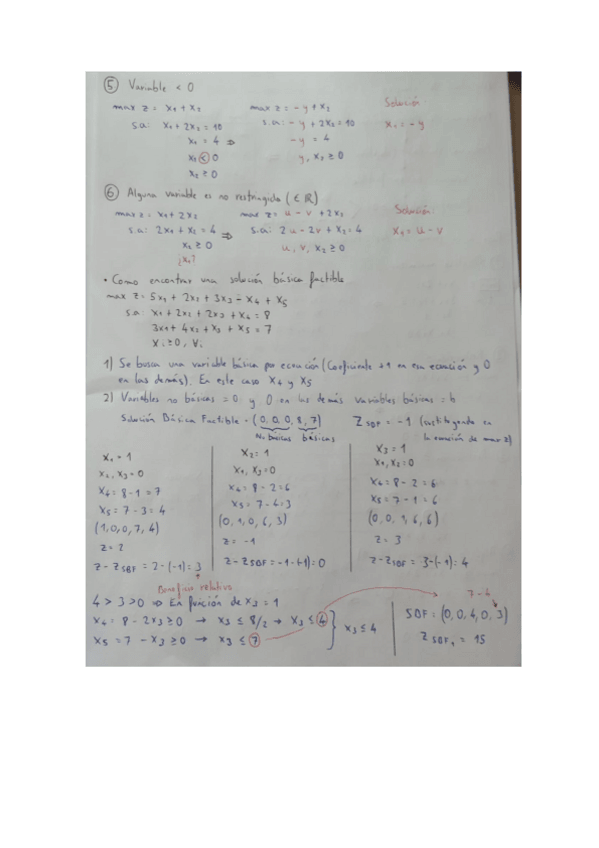 ⑤ Variable < 0
max z = x₁ + x₂
s.a: x₁ + 2x₂ = 10 ⇒
x₁ = 4
x₁ < 0
x₂ ≥ 0
max z = -y + x₂
s.a: -y + 2x₂ = 10
-y = 4
y, x₂ ≥ 0
Solución
x₁ = -y
⑥ Alguna variable es no restringida (∈ ℝ)
max z = x₁ + 2x₂
s.a: 2x₁ + x₂ = 4 ⇒
x₂ ≥ 0
¿x₁?
max z = u - v + 2x₂
s.a: 2u - 2v + x₂ = 4
u, v, x₂ ≥ 0
Solución:
x₁ = u - v
• Como encontrar una solución básica factible
max z = 5x₁ + 2x₂ + 3x₃ - x₄ + x₅
s.a: x₁ + 2x₂ + 2x₃ + x₄ = 8
3x₁ + 4x₂ + x₃ + x₅ = 7
xᵢ ≥ 0, ∀ᵢ
1) Se busca una variable básica por ecuación (Coeficiente +1 en esa ecuación y 0
en las demás). En este caso x₄ y x₅
2) Variables no básicas = 0 y 0 en las demás variables básicas = b
Solución Básica Factible = (0, 0, 0, 8, 7) Z SBF = -1 (sustituyendo en
No básicas básicas la ecuación de max z)
x₁ = 1
x₂, x₃ = 0
x₄ = 8 - 1 = 7
x₅ = 7 - 3 = 4
(1, 0, 0, 7, 4)
z = 2
z - z SBF = 2 - (-1) = 3
x₂ = 1
x₁, x₃ = 0
x₄ = 8 - 2 = 6
x₅ = 7 - 4 = 3
(0, 1, 0, 6, 3)
z = -1
z - z SBF = -1 - (-1) = 0
x₃ = 1
x₁, x₂ = 0
x₄ = 8 - 2 = 6
x₅ = 7 - 1 = 6
(0, 0, 1, 6, 6)
z = 3
z - z SBF = 3 - (-1) = 4
Beneficio relativo
4 > 3 > 0 ⇒ En función de x₃ = 1
x₄ = 8 - 2x₃ ≥ 0 → x₃ ≤ 8/2 → x₃ ≤ 4
x₅ = 7 - x₃ ≥ 0 → x₃ ≤ 7
} x₃ ≤ 4
7 - 4
SBF₁ = (0, 0, 4, 0, 3)
Z SBF₁ = 15